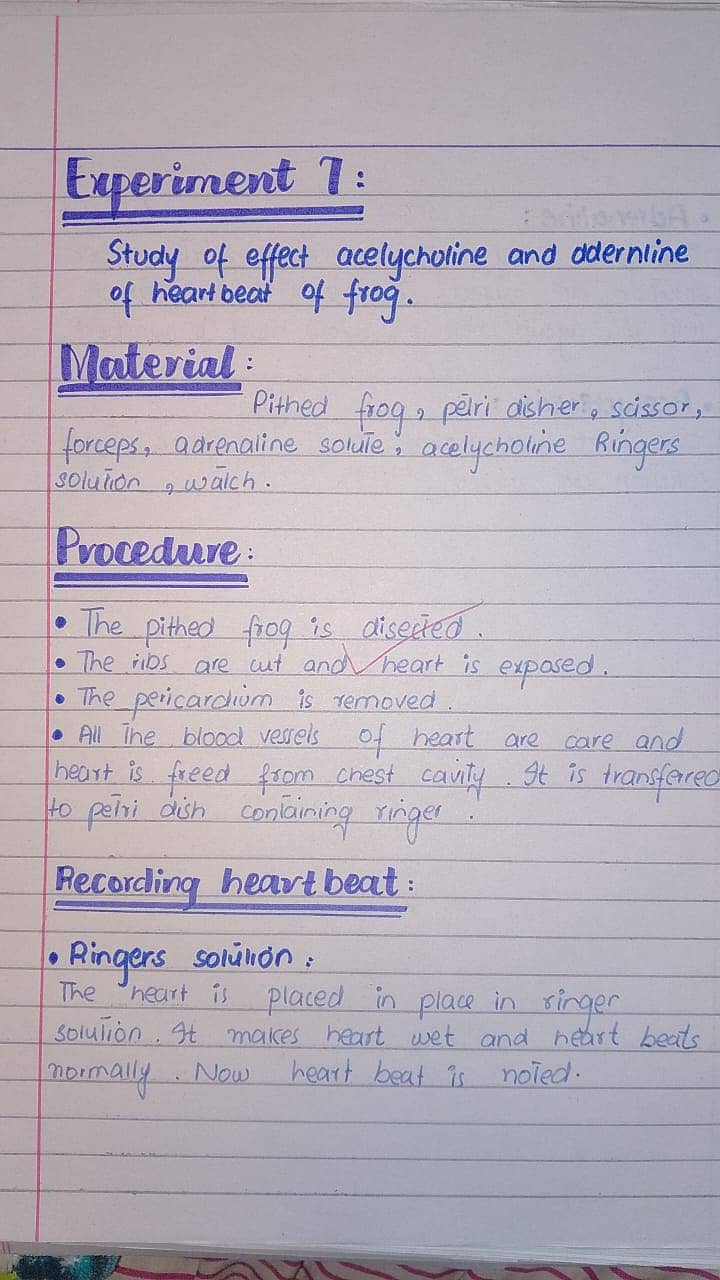 Experiment 7:
Study of effect acelycholine and adernline
of heartbeat of frog.
Material:
Pithed frog, petri disher, scissor,
forceps, adrenaline solute, acelycholine Ringers
solution, watch.
Procedure:
• The pithed frog is disected.
• The ribs are cut and heart is exposed.
• The pericardium is removed.
• All the blood vessels of heart are care and
heart is freed from chest cavity. It is transferred
to petri dish containing ringer.
Recording heartbeat:
• Ringers solution:
The heart is placed in place in ringer
solution. It makes heart wet and heart beats
normally. Now heart beat is noted.